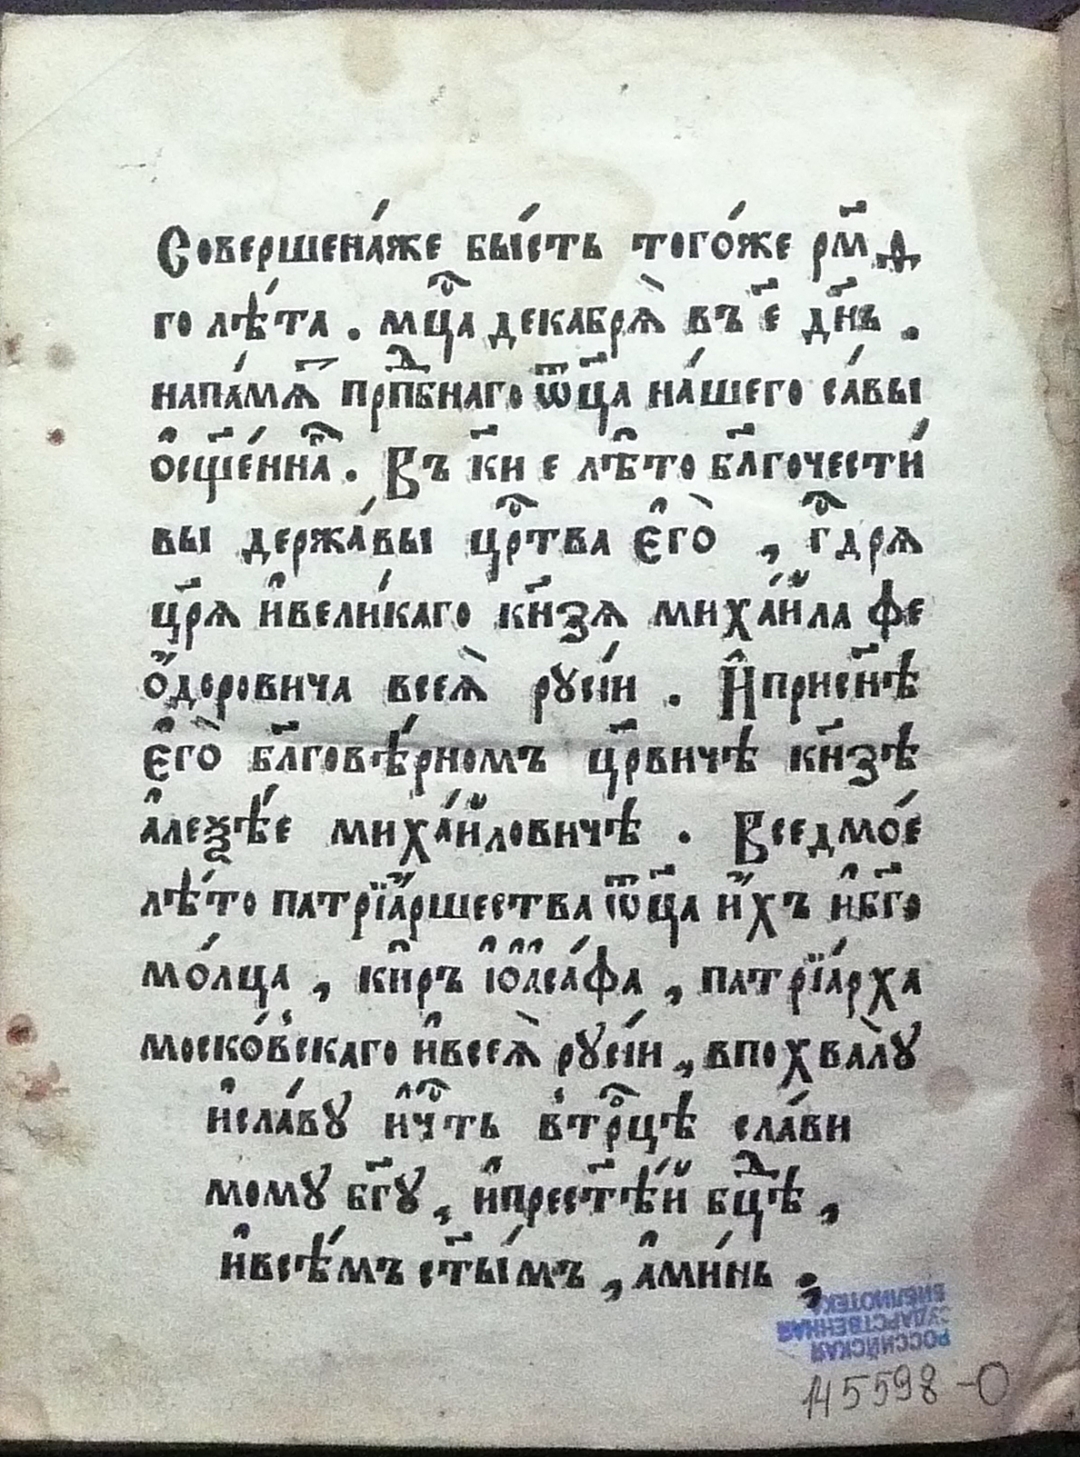 Совершена́же бы́сть того́же рм҃д
го лѣ́та . мц҇а декабрѧ̀ въ є҃ дн҃ь .
напа́мѧ҃ прпⷣбнаго ѿц҃а на́шего са́вы
ѻ҆сщ҃е́ннаⷢ . Въ к҃и е лѣ̑то бл҃гочести́
вы держа́вы црⷭ҇тва є҆гѡ̀ , гⷭ҇дрѧ
цр҃ѧ и҆вели́каго кн҃зѧ миха́ила фе
ѻ҆́доровича всеѧ̀ рꙋсі́и . И҆присн҃ѣ
є҆го̀ бл҃говѣ́рномъ цр҃вичѣ кн҃зѣ
а҆леѯѣ́е миха́иловичѣ . Вседмо́е
лѣ́то патрїа́ршества ѿц҃а и҆́хъ и҆бг҃о
мо́лца , ки̑ръ і҆ѻ҆асафа , патрїа́рха
моско́вскаго и҆всеѧ̀ рꙋсі́и , впохвалꙋ̀
и҆сла́вꙋ и҆чⷭ҇ть втрⷪ҇цѣ сла́ви
момꙋ бг҃ꙋ , и҆прест҃ѣ́й бцⷣѣ ,
и҆всѣ́мъ ст҃ы́мъ , а҆ми́нь ;
РОССИЙСКАЯ
ГОСУДАРСТВЕННАЯ
БИБЛИОТЕКА
145598-О